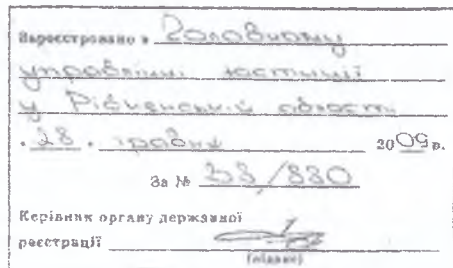 Зареєстровано в Головному
управлінні юстиції
у Рівненській області
"28" грудня 2009 р.
За № 53/880
Керівник органу державної
реєстрації
(підпис)